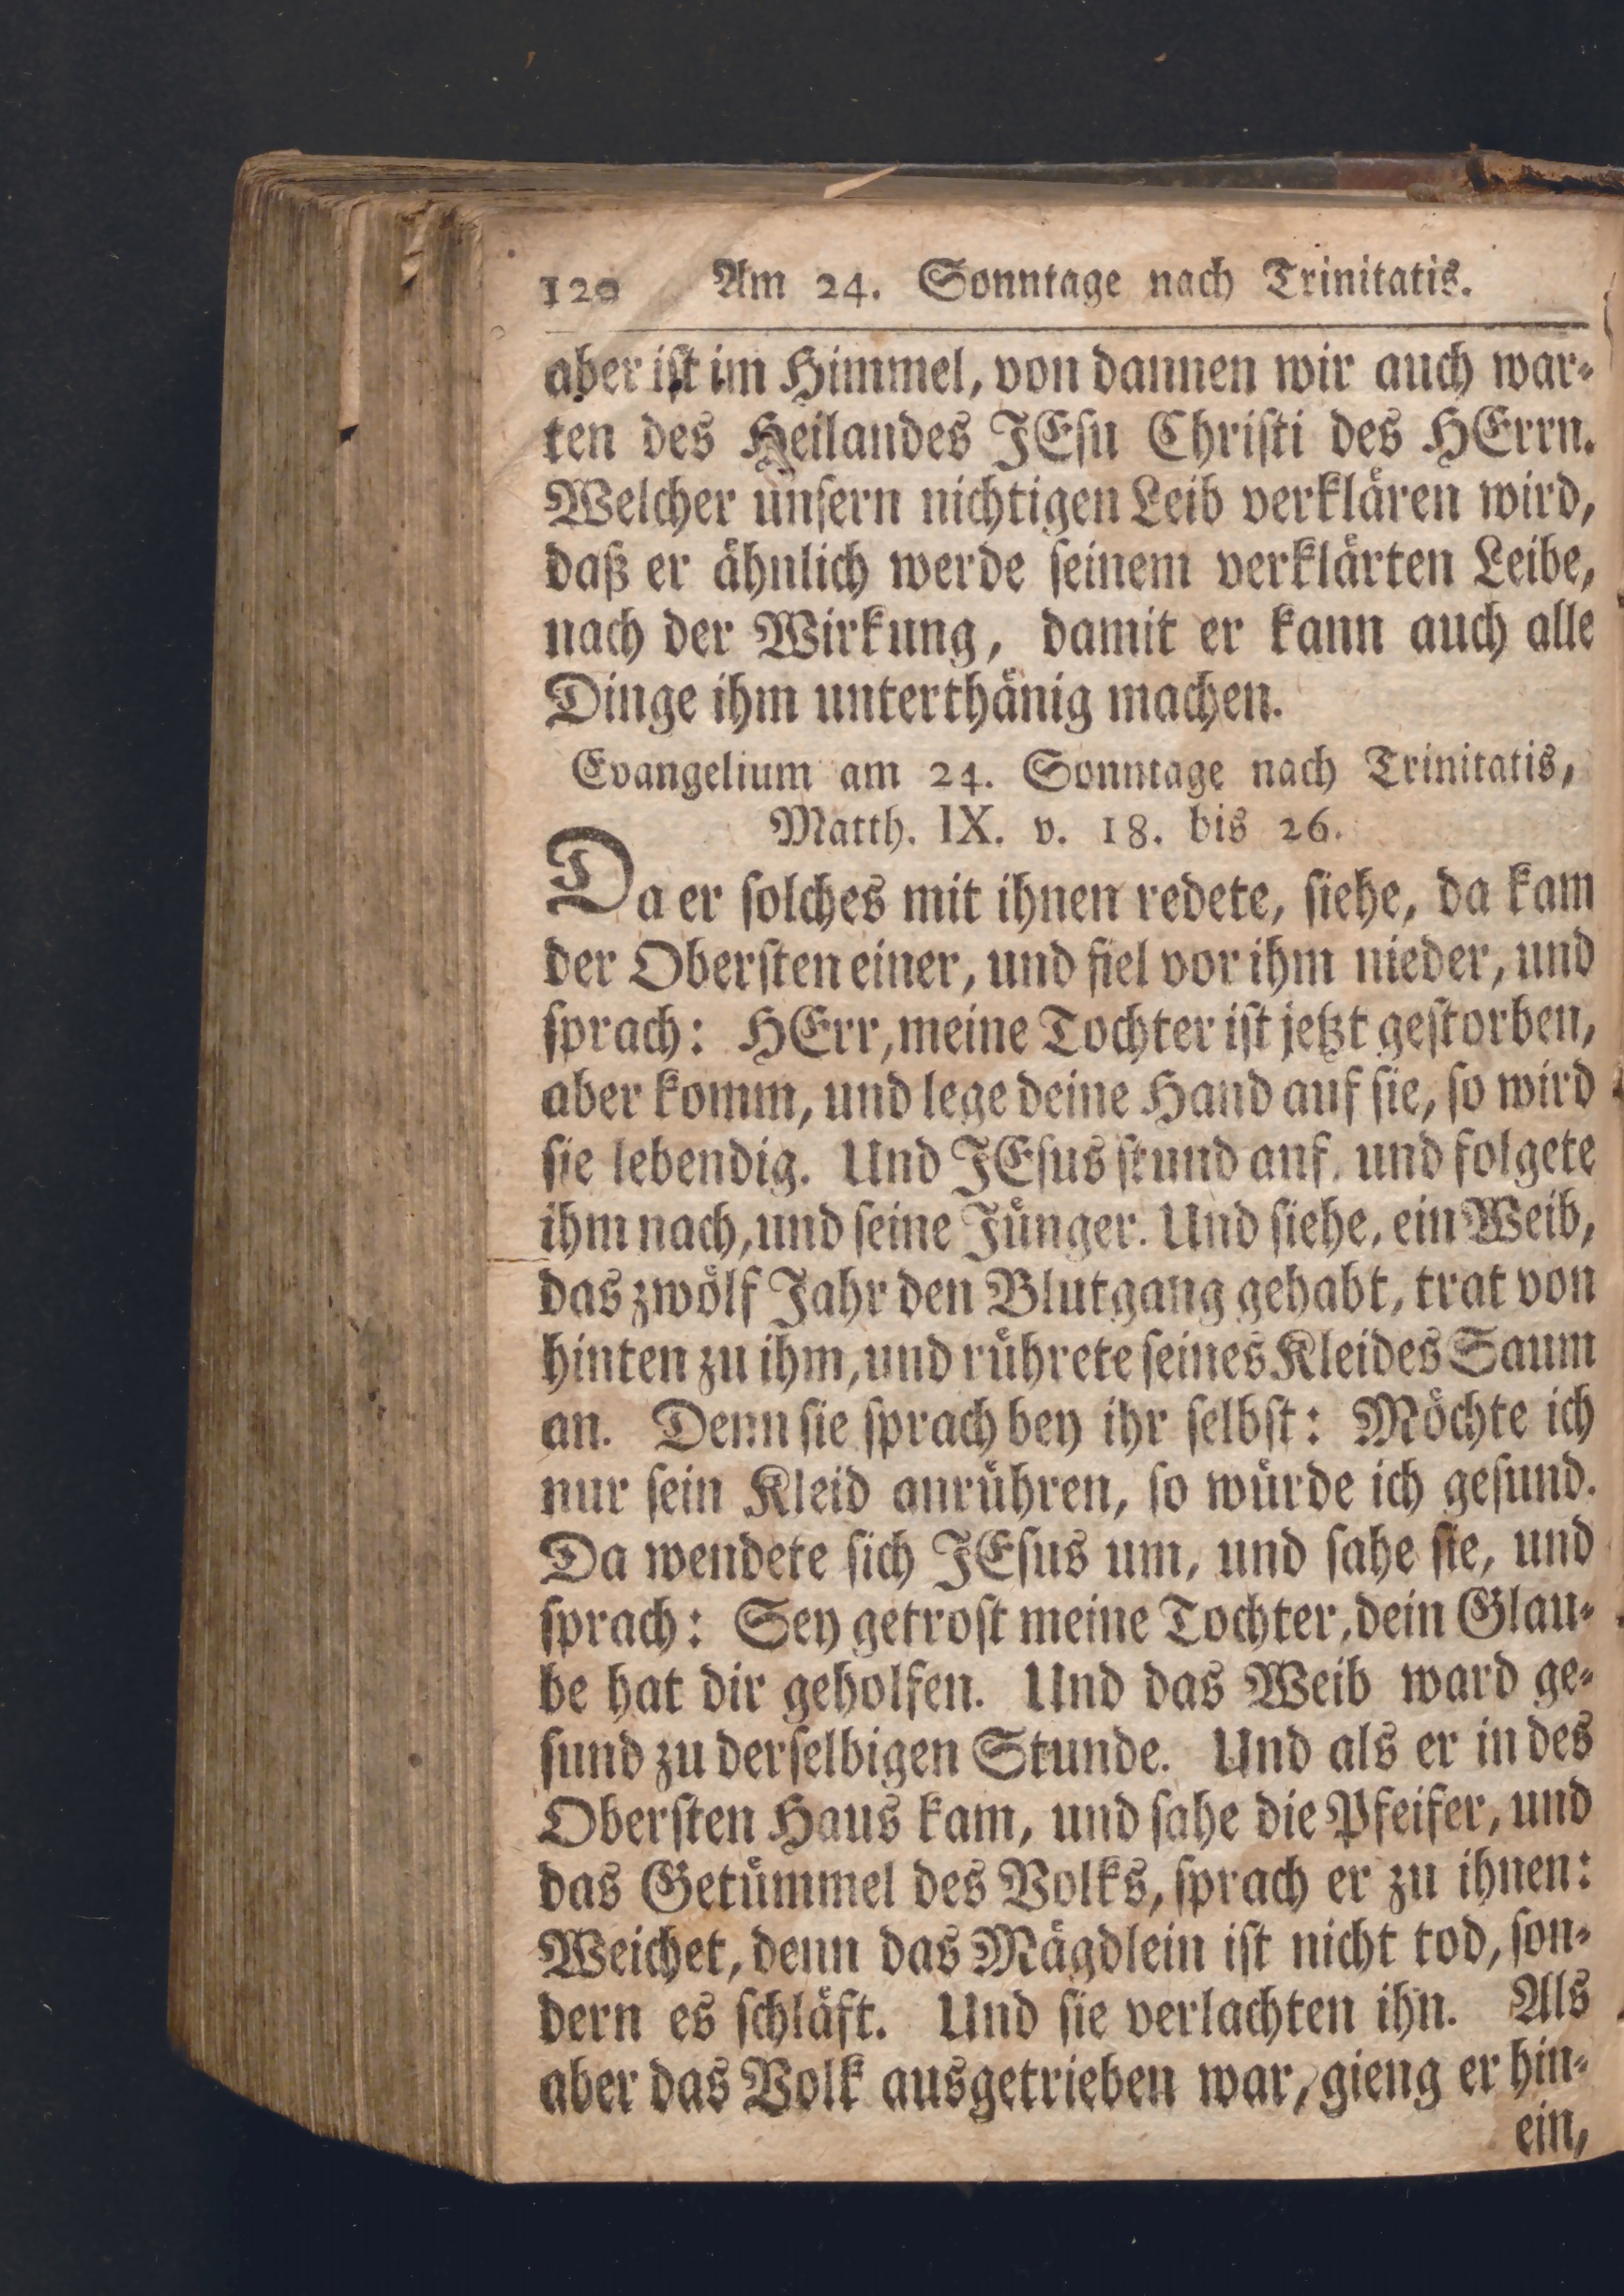 120 Am 24. Sonntage nach Trinitatis.
aber ist im Himmel, von dannen wir auch war-
ten des Heilandes JEsu Christi des HErrn.
Welcher unsern nichtigen Leib verklären wird,
daß er ähnlich werde seinem verklärten Leibe,
nach der Wirkung, damit er kann auch alle
Dinge ihm unterthänig machen.
Evangelium am 24. Sonntage nach Trinitatis,
Matth. IX. v. 18. bis 26.
Da er solches mit ihnen redete, siehe, da kam
der Obersten einer, und fiel vor ihm nieder, und
sprach: HErr, meine Tochter ist jetzt gestorben,
aber komm, und lege deine Hand auf sie, so wird
sie lebendig. Und JEsus stund auf, und folgete
ihm nach, und seine Jünger. Und siehe, ein Weib,
das zwölf Jahr den Blutgang gehabt, trat von
hinten zu ihm, und rührete seines Kleides Saum
an. Denn sie sprach bey ihr selbst: Möchte ich
nur sein Kleid anrühren, so würde ich gesund.
Da wendete sich JEsus um, und sahe sie, und
sprach: Sey getrost meine Tochter, dein Glau-
be hat dir geholfen. Und das Weib ward ge-
sund zu derselbigen Stunde. Und als er in des
Obersten Haus kam, und sahe die Pfeifer, und
das Getümmel des Volks, sprach er zu ihnen:
Weichet, denn das Mägdlein ist nicht tod, son-
dern es schläft. Und sie verlachten ihn. Als
aber das Volk ausgetrieben war, gieng er hin-
ein,